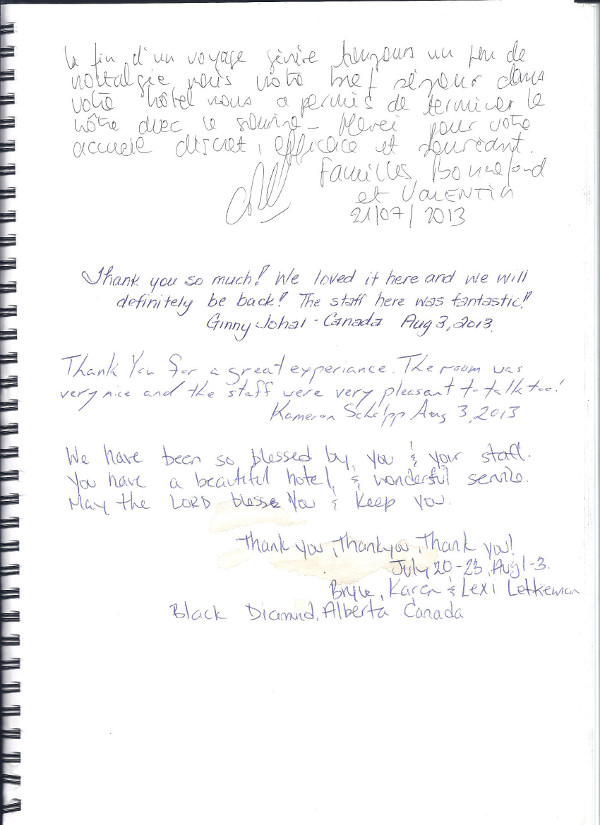 La fin d'un voyage génère toujours un peu de
nostalgie mais votre bref séjour dans
votre hôtel nous a permis de terminer le
nôtre avec le sourire - Merci pour votre
accueil discret, efficace et souriant.
Familles
et VALENTIN
21/07/2013
Thank you so much! We loved it here and we will
definitely be back! The staff here was fantastic!!
Ginny Johal - Canada Aug 3, 2013.
Thank You for a great experiance. The room was
very nice and the staff were very pleasant to talk too!
Kameron Schlpp Aug 3, 2013
We have been so blessed by you & your staff.
You have a beautiful hotel & wonderful service.
May the LORD blesse You & Keep you.
Thank you, Thankyou, Thank you!
July 20-23, Aug 1-3.
Bryce, Karen & Lexi Letkeman
Black Diamond, Alberta Canada